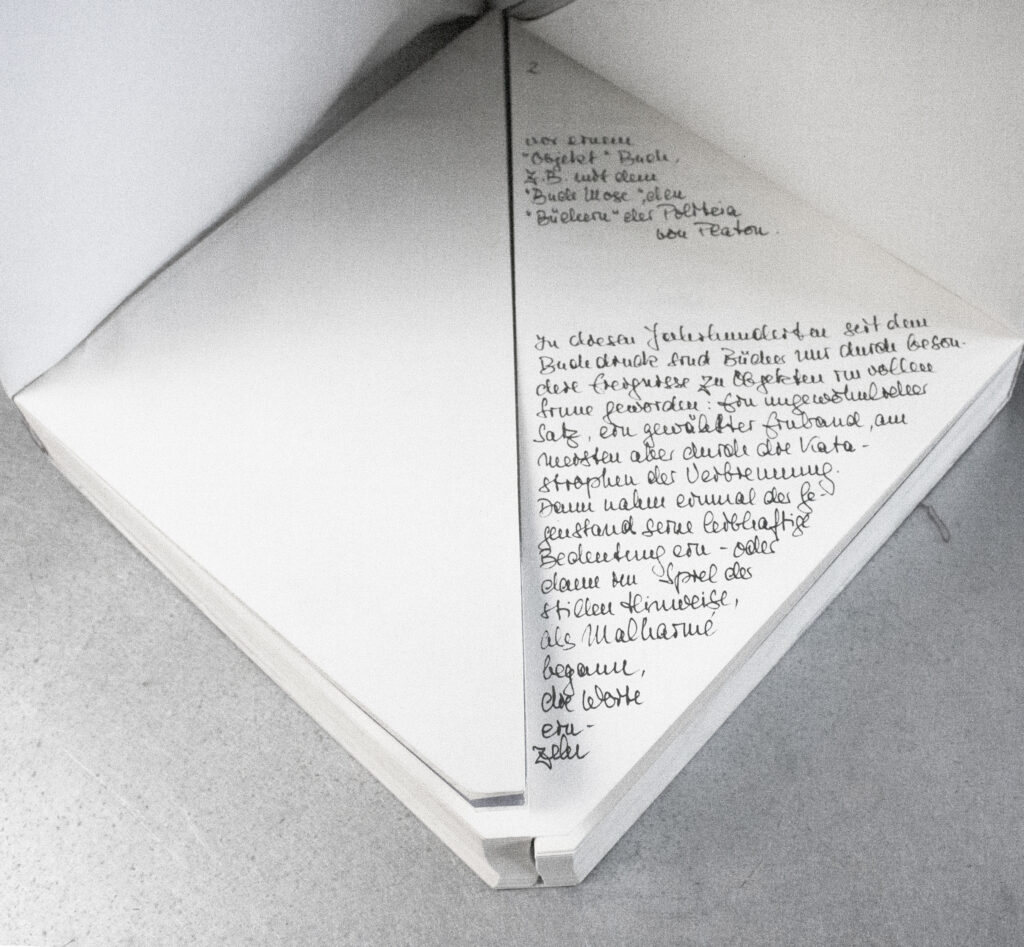 2
vor einem
"Objekt" Buch,
z.B. mit dem
"Buch Mose", den
"Büchern" der Politeia
von Platon.
In diesen Jahrhunderten seit dem
Buchdruck sind Bücher nur durch beson-
dere Ereignisse zu Objekten im vollen
Sinne geworden: Ein ungewöhnlicher
Satz, ein gewählter Einband, am
meisten aber durch die Kata-
strophen der Verbrennung.
Dann nahm einmal der Ge-
genstand seine leibhaftige
Bedeutung ein - oder
dann im Spiel der
stillen Hinweise,
als Malharmé
begann,
die Worte
ein-
zeln